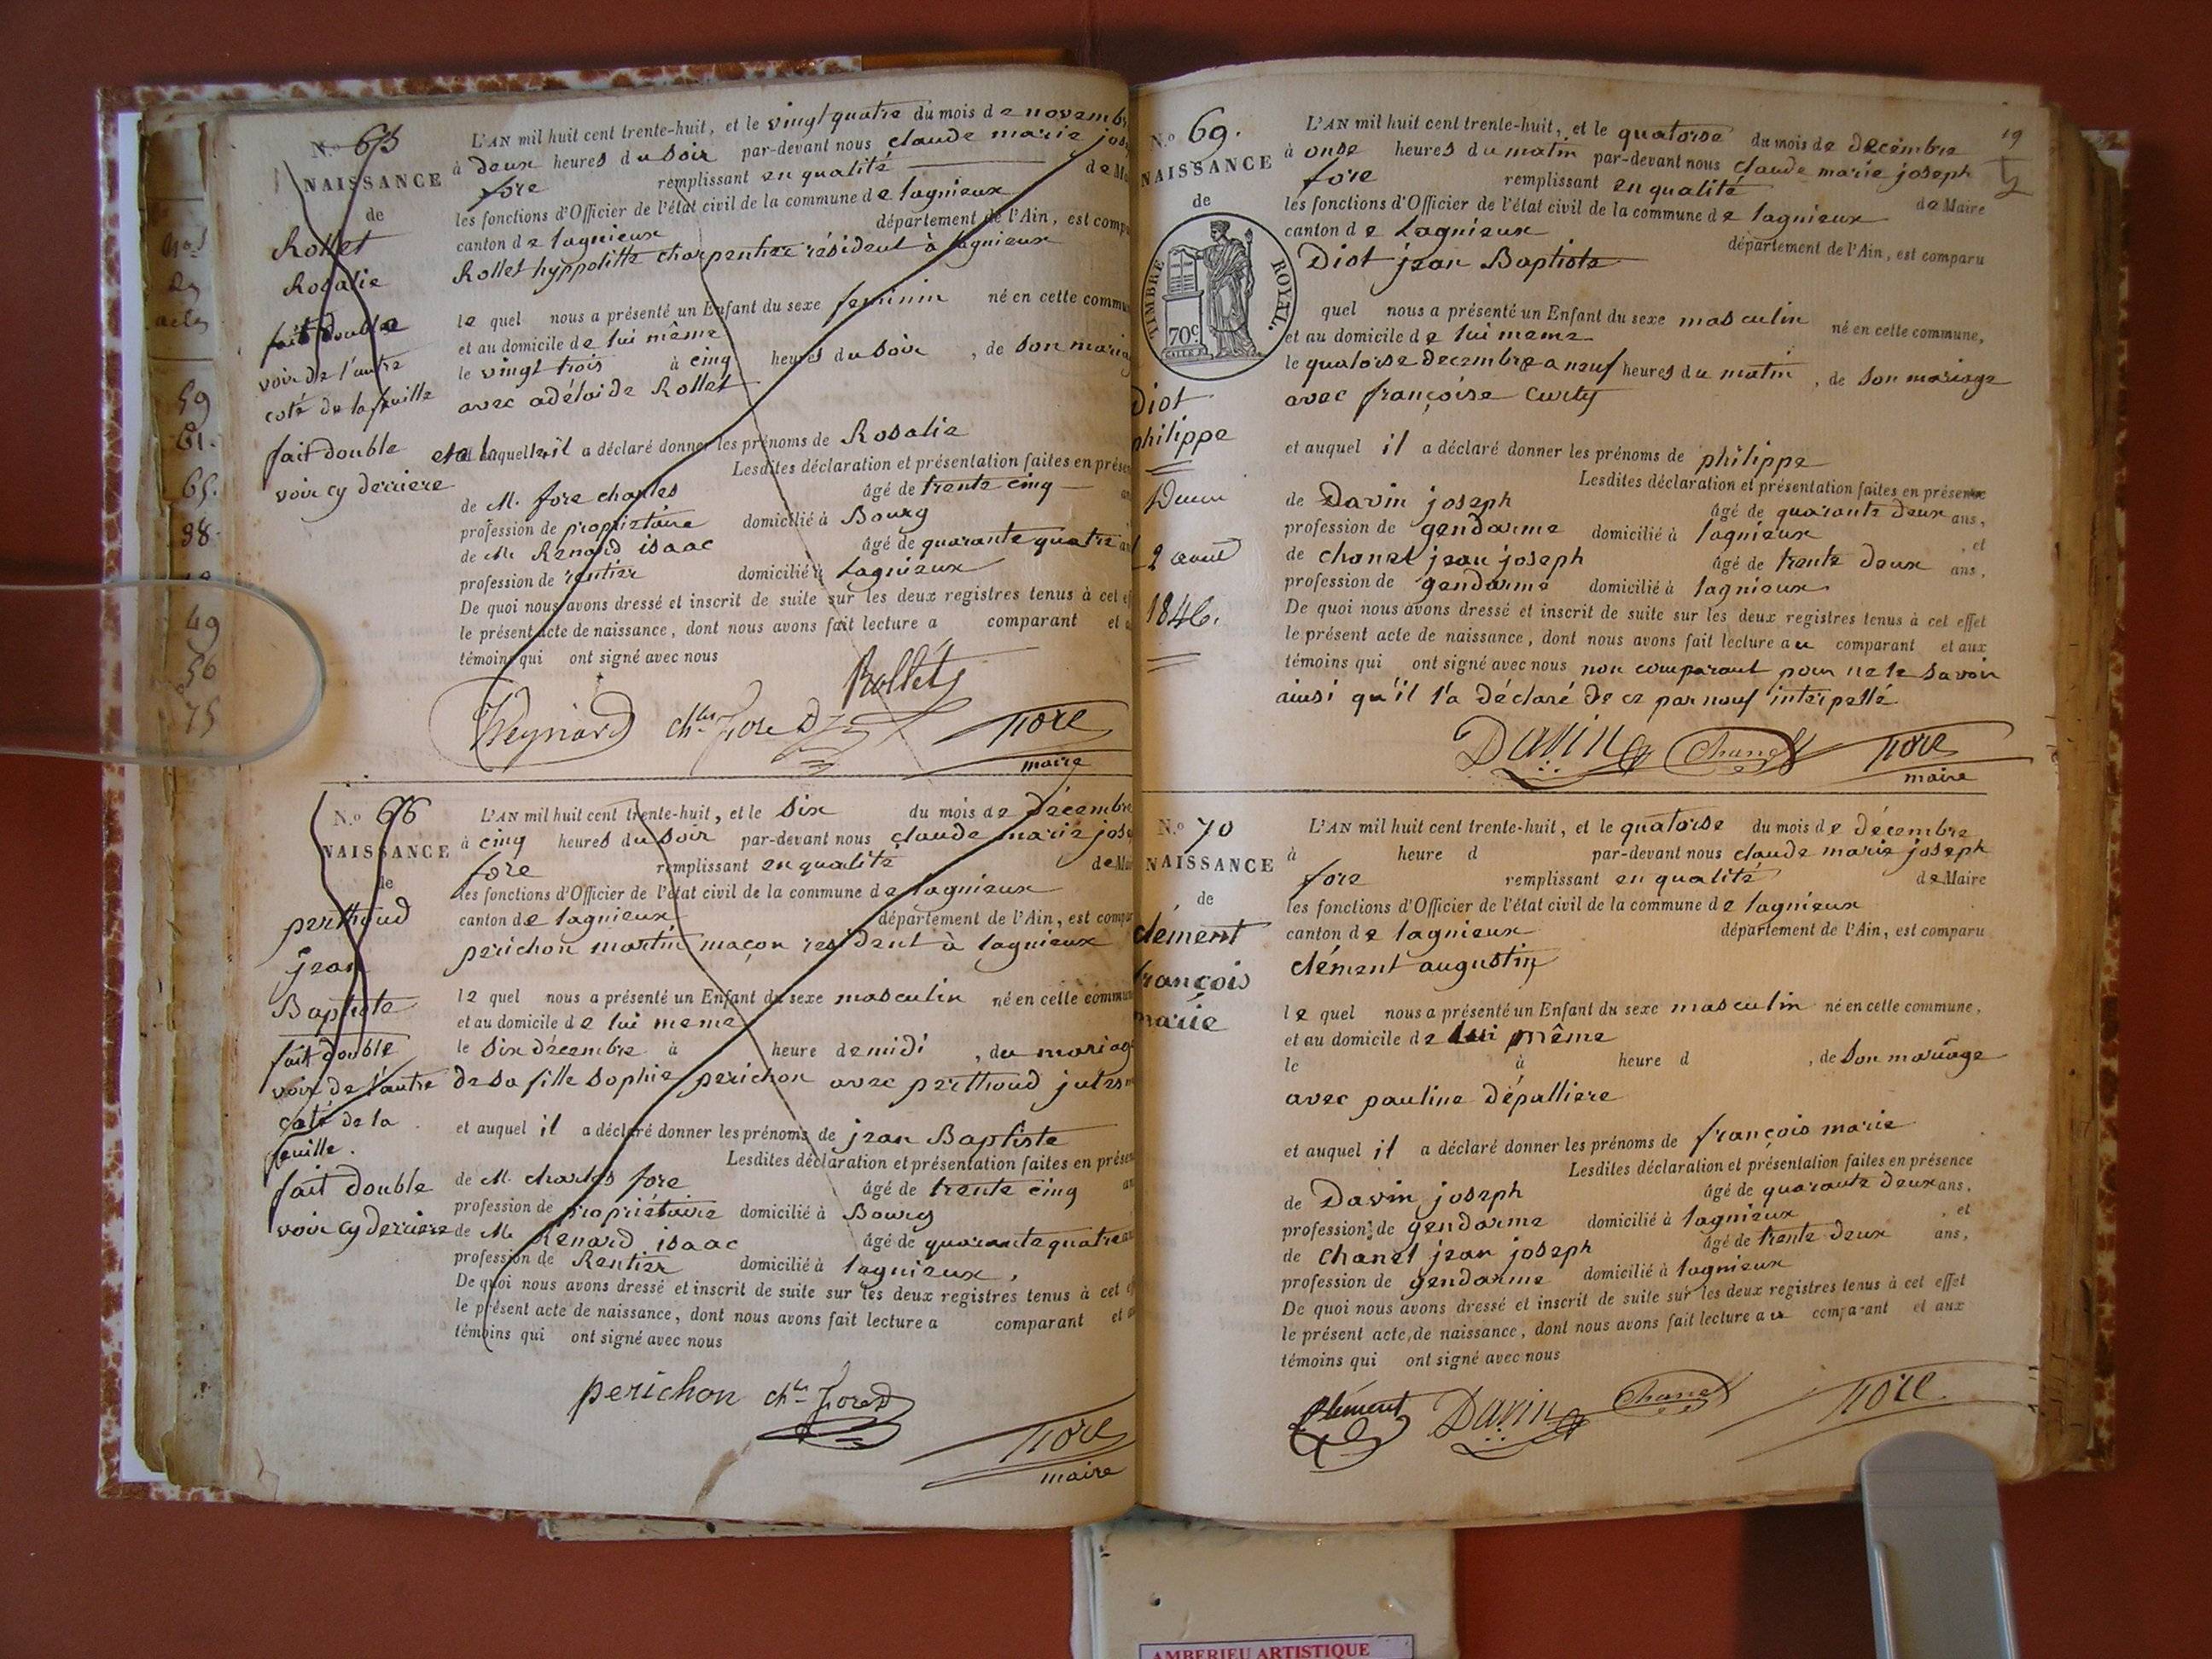 nos
des
actes
59
61.
65.
38.
49
56
75
N.o 65
NAISSANCE
de
Rollet
Rosalie
fait double
voir de l'autre
coté de la feuille
fait double
voir cy derriere
L'AN mil huit cent trente-huit, et le vingt quatre du mois de novembr
à deux heures du soir par-devant nous claude marie jos
fore remplissant en qualité de Ma
les fonctions d'Officier de l'état civil de la commune de lagnieux
canton de lagnieux département de l'Ain, est compa
Rollet hyppolitte charpentier résident à lagnieux
le quel nous a présenté un Enfant du sexe feminin né en cette commu
et au domicile de lui même
le vingt trois à cinq heures du soir, de son mariag
avec adélaide Rollet
et a laquelle il a déclaré donner les prénoms de Rosalie
Lesdites déclaration et présentation faites en présen
de M. fore charles âgé de trente cinq an
profession de propriétaire domicilié à Bourg
de Mr Renard isaac âgé de quarante quatre an
profession de rentier domicilié à Lagnieux
De quoi nous avons dressé et inscrit de suite sur les deux registres tenus à cet ef
le présent acte de naissance, dont nous avons fait lecture a comparant et a
témoins qui ont signé avec nous
Rollet
Reynard chles Fore fore
maire
N.o 66
NAISSANCE
de
perthoud
jean
Baptiste
fait double
voir de l'autre
coté de la
feuille.
fait double
voir cy derriere
L'AN mil huit cent trente-huit, et le six du mois de décembre
à cinq heures du soir par-devant nous claude marie jose
fore remplissant en qualité de Mai
les fonctions d'Officier de l'état civil de la commune de lagnieux
canton de lagnieux département de l'Ain, est compar
perichon martin maçon résident à lagnieux
le quel nous a présenté un Enfant du sexe masculin né en cette commun
et au domicile de lui meme
le six décembre à heure de midi, du mariag
de sa fille sophie perichon avec perthoud jules
et auquel il a déclaré donner les prénoms de jean Baptiste
Lesdites déclaration et présentation faites en présen
de M. charles fore âgé de trente cinq an
profession de propriétaire domicilié à Bourg
de Mr Renard isaac âgé de quarante quatre an
profession de Rentier domicilié à lagnieux,
De quoi nous avons dressé et inscrit de suite sur les deux registres tenus à cet ef
le présent acte de naissance, dont nous avons fait lecture a comparant et a
témoins qui ont signé avec nous
perichon chles Fore
fore
maire
19
N.o 69.
NAISSANCE
de
TIMBRE ROYAL.
70c
diot
philippe
2 aout
1846.
L'AN mil huit cent trente-huit, et le quatorse du mois de décembre
à onse heures du matin par-devant nous claude marie joseph
fore remplissant en qualité de Maire
les fonctions d'Officier de l'état civil de la commune de lagnieux
canton de Lagnieux département de l'Ain, est comparu
Diot jean Baptiste
quel nous a présenté un Enfant du sexe masculin né en cette commune,
et au domicile de lui meme
le quatorse decembre a neuf heures du matin, de son mariage
avec françoise Curty
et auquel il a déclaré donner les prénoms de philippe
Lesdites déclaration et présentation faites en présence
de Davin joseph âgé de quarante deux ans,
profession de gendarme domicilié à lagnieux, et
de chanel jean joseph âgé de trente deux ans,
profession de gendarme domicilié à lagnieux
De quoi nous avons dressé et inscrit de suite sur les deux registres tenus à cet effet
le présent acte de naissance, dont nous avons fait lecture au comparant et aux
témoins qui ont signé avec nous non comparant pour ne le savoir
ainsi qu'il l'a déclaré de ce par nous interpellé
Davin Chanel fore
maire
N.o 70
NAISSANCE
de
clément
françois
marie
L'AN mil huit cent trente-huit, et le quatorse du mois de décembre
à heure d par-devant nous claude marie joseph
fore remplissant en qualité de Maire
les fonctions d'Officier de l'état civil de la commune de lagnieux
canton de lagnieux département de l'Ain, est comparu
clément augustin
le quel nous a présenté un Enfant du sexe masculin né en cette commune,
et au domicile de lui même
le à heure d, de son mariage
avec pauline dépalliere
et auquel il a déclaré donner les prénoms de françois marie
Lesdites déclaration et présentation faites en présence
de Davin joseph âgé de quarante deux ans,
profession de gendarme domicilié à lagnieux, et
de chanel jean joseph âgé de trente deux ans,
profession de gendarme domicilié à lagnieux
De quoi nous avons dressé et inscrit de suite sur les deux registres tenus à cet effet
le présent acte de naissance, dont nous avons fait lecture au comparant et aux
témoins qui ont signé avec nous
Clément Davin Chanel fore
AMBERIEU ARTISTIQUE